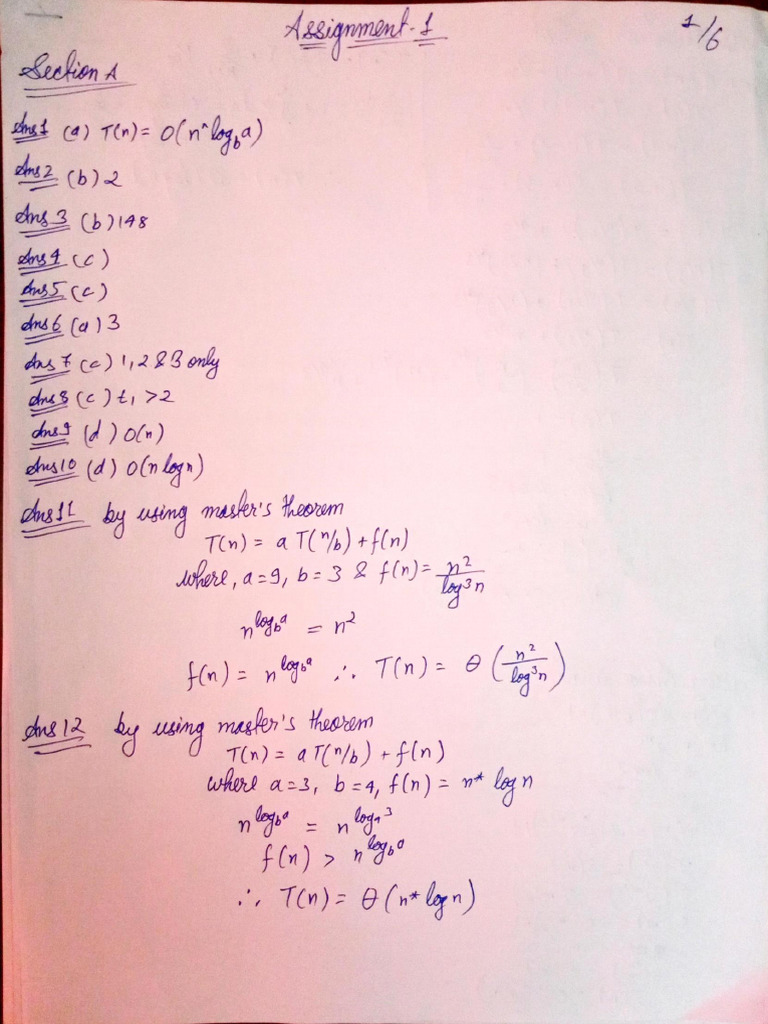 Assignment-1
1/6
Section A
Ans1 (a) T(n) = O(n^log_b a)
Ans2 (b) 2
Ans3 (b) 148
Ans4 (c)
Ans5 (c)
Ans6 (a) 3
Ans7 (c) 1,2 & 3 only
Ans8 (c) t, >2
Ans9 (d) O(n)
Ans10 (d) O(n log n)
Ans11 by using master's theorem
T(n) = a T(n/b) + f(n)
where, a=9, b=3 & f(n) = n²/log³n
n^log_b a = n²
f(n) = n^log_b a ∴ T(n) = θ(n²/log³n)
Ans12 by using master's theorem
T(n) = a T(n/b) + f(n)
where a=3, b=4, f(n) = n* log n
n^log_b a = n^log_4 3
f(n) > n^log_b a
∴ T(n) = θ(n* log n)